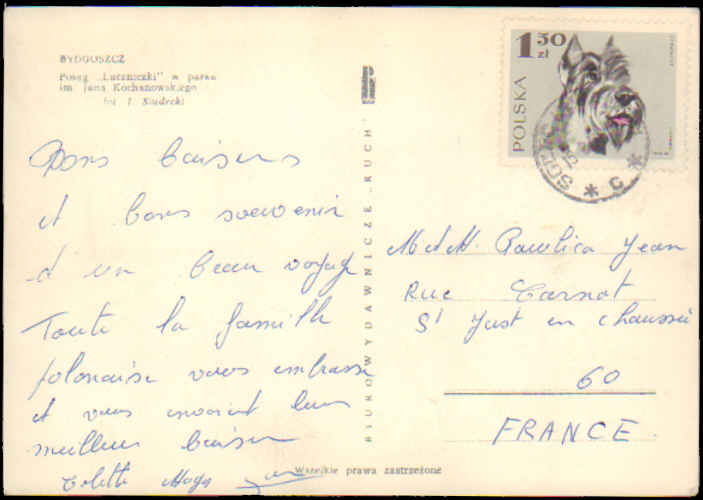 BYDGOSZCZ
Posąg „Łuczniczki" w parku
im. Jana Kochanowskiego
fot. J. Siudecki
Bons baisers
et bons souvenir
d un beau voyage
Toute la famille
polonaise vous embrasse
et vous envoient leurs
meilleurs baisers
Colette
BIURO WYDAWNICZE „RUCH"
Wszelkie prawa zastrzeżone
1.50 zł
POLSKA
C
M et M. Pawlica Jean
Rue Carnot
St Just en chaussée
60
FRANCE